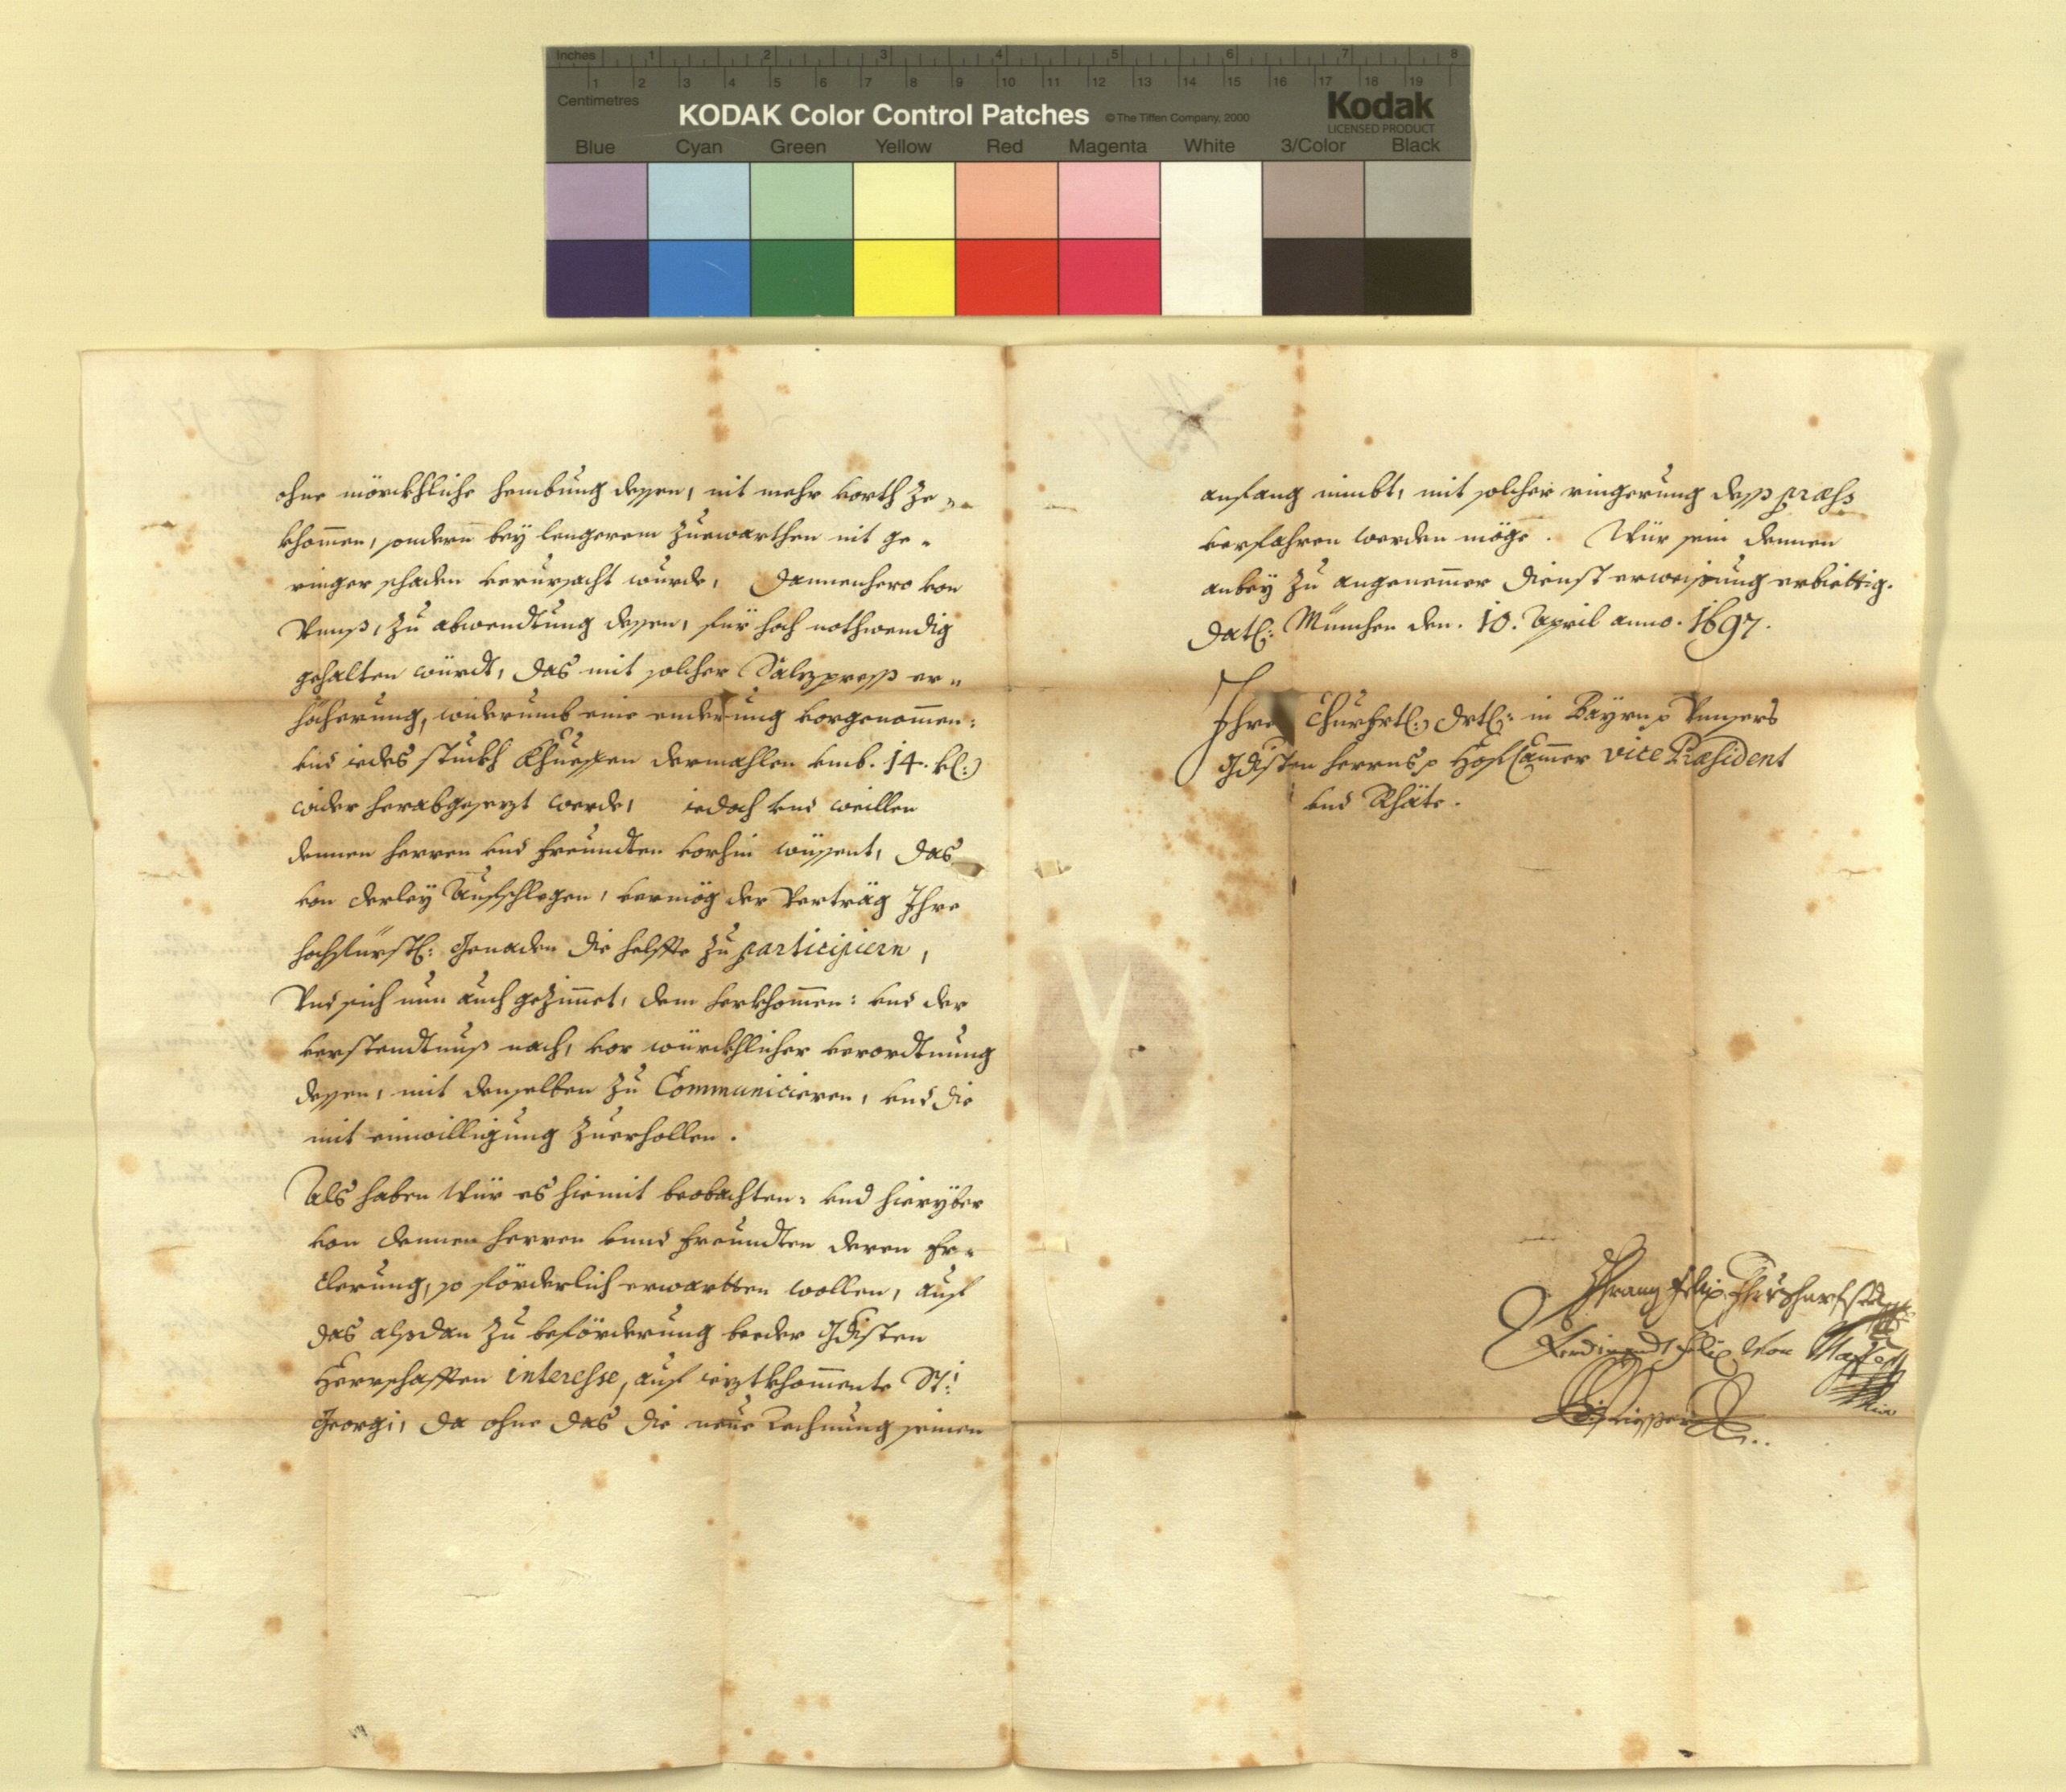 Inches 1 2 3 4 5 6 7 8
1 2 3 4 5 6 7 8 9 10 11 12 13 14 15 16 17 18 19
Centimetres
KODAK Color Control Patches ©The Tiffen Company, 2000 Kodak
LICENSED PRODUCT
Blue Cyan Green Yellow Red Magenta White 3/Color Black
ohne mörckhliche hembung dessen, nit mehr vorth ze-
khom̃en, sondern bey lengerem Zuewarthen nit ge-
ringer schaden verursacht wurde, Dannenhero von
Vnnß, zu abwendtung dessen, für hoch nothwendig
gehalten würdt, das mit solcher Salzpreß er-
höcherung, widerumb eine enderung vorgenom̃en:
vnd iedes stuckh Khueffen dermahlen vmb. 14. kr:
wider herabgesezt werde, iedoch vnd weillen
dennen herren vnd freundten vorhin wüssent, das
von derley Aufschlegen, vermög der Verträg Ihre
hochfürstl: Genaden die helffte zu participiern,
Vnd sich nun auch gezim̃et, dem herkhom̃en: vnd der
verstendtnuß nach, vor würckhlicher verordtnung
dessen, mit denselben zu Communicieren, vnd die
mit einwilligung zuerhollen.
Als haben Wür es hiemit beobachten: vnd hieryber
von dennen herren vnnd freundten deren Er-
clerung, so förderlich erwartten wollen, auf
das alßdan zu beförderung beeder Gdisten
Herrschafften interesse, auf ieztkhom̃ente St:
Georgi, da ohne das die neue Rechnung seinen
anfang nimbt, mit solcher ringerung deß præß
verfahren werden möge. Wür sein dennen
anbey zu angenem̃er Dienst erweisung erbiettig.
Datl: München den. 10. April anno. 1697.
Ihre Churfrtl: Drtl: in Bayrn p Vnnsers
Gdisten herrns p Hof Cam̃er Vice Præsident
vnd Rhäte.
Ferdinandt Felix Von